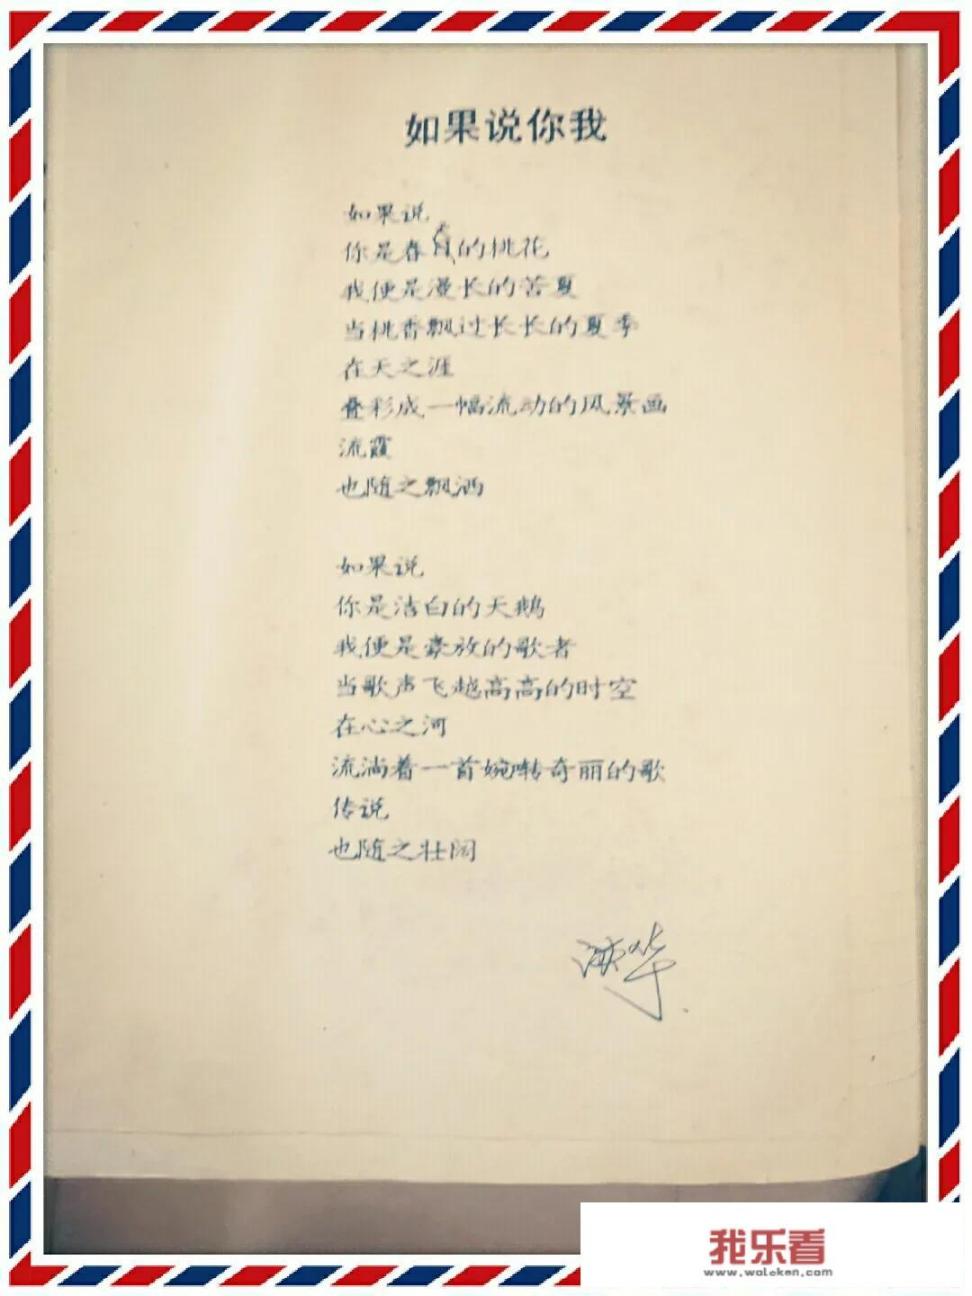 如果说你我
如果说
你是春天的桃花
我便是漫长的苦夏
当桃香飘过长长的夏季
在天之涯
叠彩成一幅流动的风景画
流霞
也随之飘洒
如果说
你是洁白的天鹅
我便是豪放的歌者
当歌声飞越高高的时空
在心之河
流淌着一首婉啭奇丽的歌
传说
也随之壮阔
华
我乐看
www.woleken.com